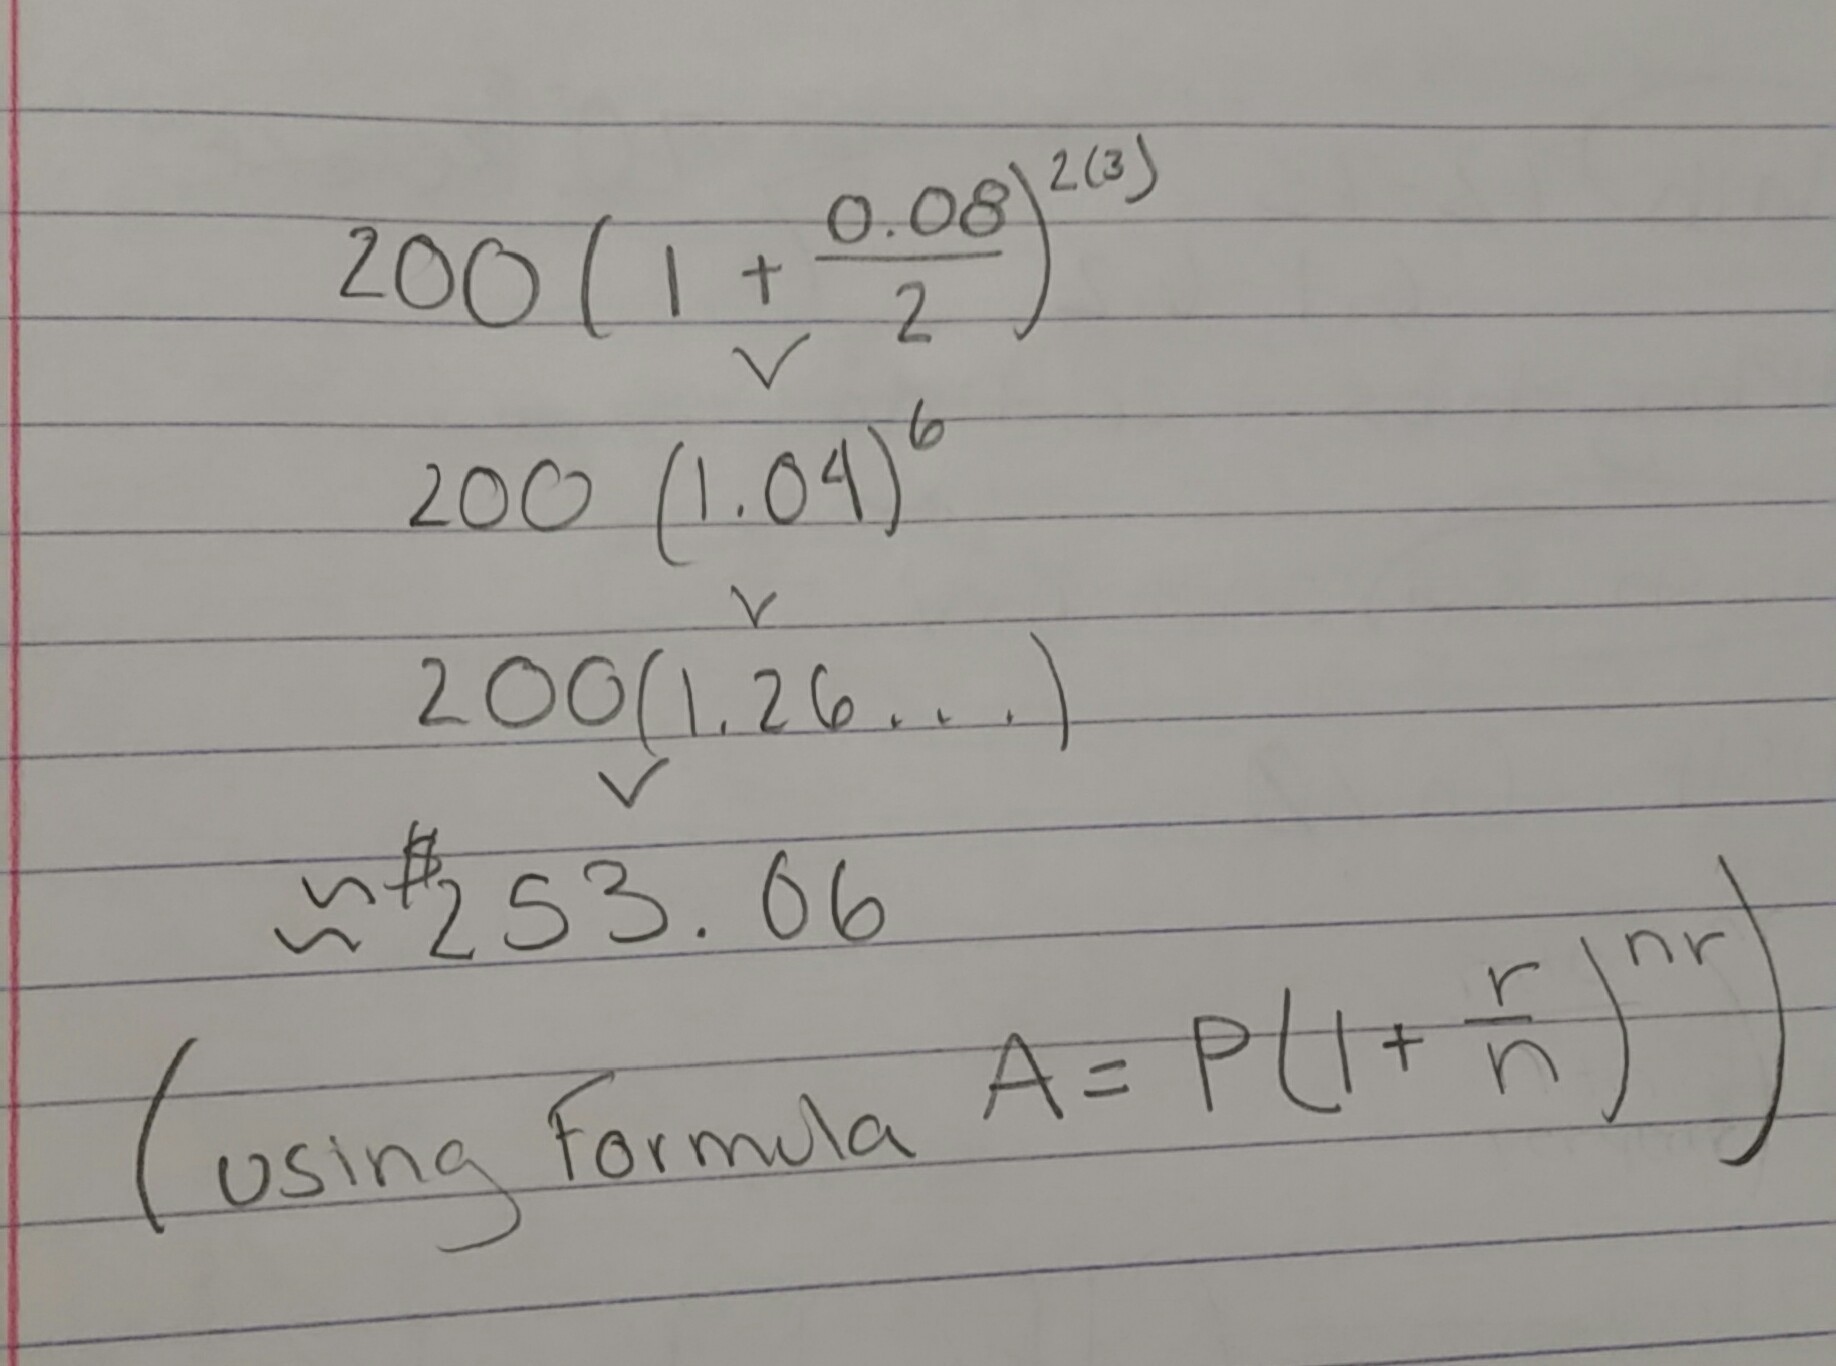 200 ( 1 + 0.08/2 )^2(3)
200 (1.04)^6
200(1.26...)
≈ $253.06
(using Formula A = P(1 + r/n)^nr)